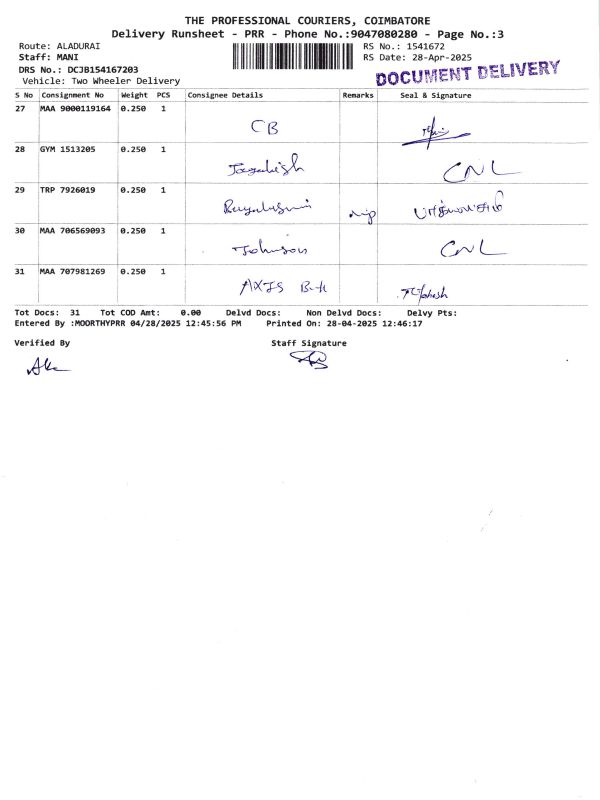 THE PROFESSIONAL COURIERS, COIMBATORE
Delivery Runsheet - PRR - Phone No.:9047080280 - Page No.:3
Route: ALADURAI
RS No.: 1541672
Staff: MANI
RS Date: 28-Apr-2025
DRS No.: DCJB154167203
DOCUMENT DELIVERY
Vehicle: Two Wheeler Delivery
S No Consignment No Weight PCS Consignee Details Remarks Seal & Signature
27 MAA 9000119164 0.250 1 CB
28 GYM 1513205 0.250 1 Jagadish CNL
29 TRP 7926019 0.250 1
30 MAA 706569093 0.250 1 Johnson CNL
31 MAA 707981269 0.250 1 AXIS
Tot Docs: 31 Tot COD Amt: 0.00 Delvd Docs: Non Delvd Docs: Delvy Pts:
Entered By :MOORTHYPRR 04/28/2025 12:45:56 PM Printed On: 28-04-2025 12:46:17
Verified By Staff Signature